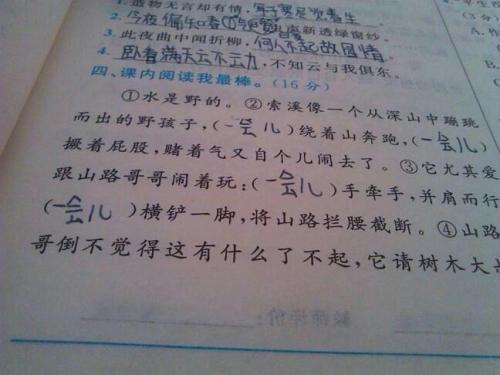 1. 造物无言却有情,
2. 今夜偏知春气暖,虫声新透绿窗纱。
3. 此夜曲中闻折柳,何人不起故园情
4. 卧看满天云不动,不知云与我俱东。
四、课内阅读我最棒。(16分)
①水是野的。②索溪像一个从深山中蹦跳
而出的野孩子,(一会儿)绕着山奔跑,(一会儿)
撅着屁股,赌着气又自个儿闹去了。③它尤其爱
跟山路哥哥闹着玩:(一会儿)手牵手,并肩而行
(一会儿)横铲一脚,将山路拦腰截断。④山路
哥倒不觉得这有什么了不起,它请树木大
教师评价: